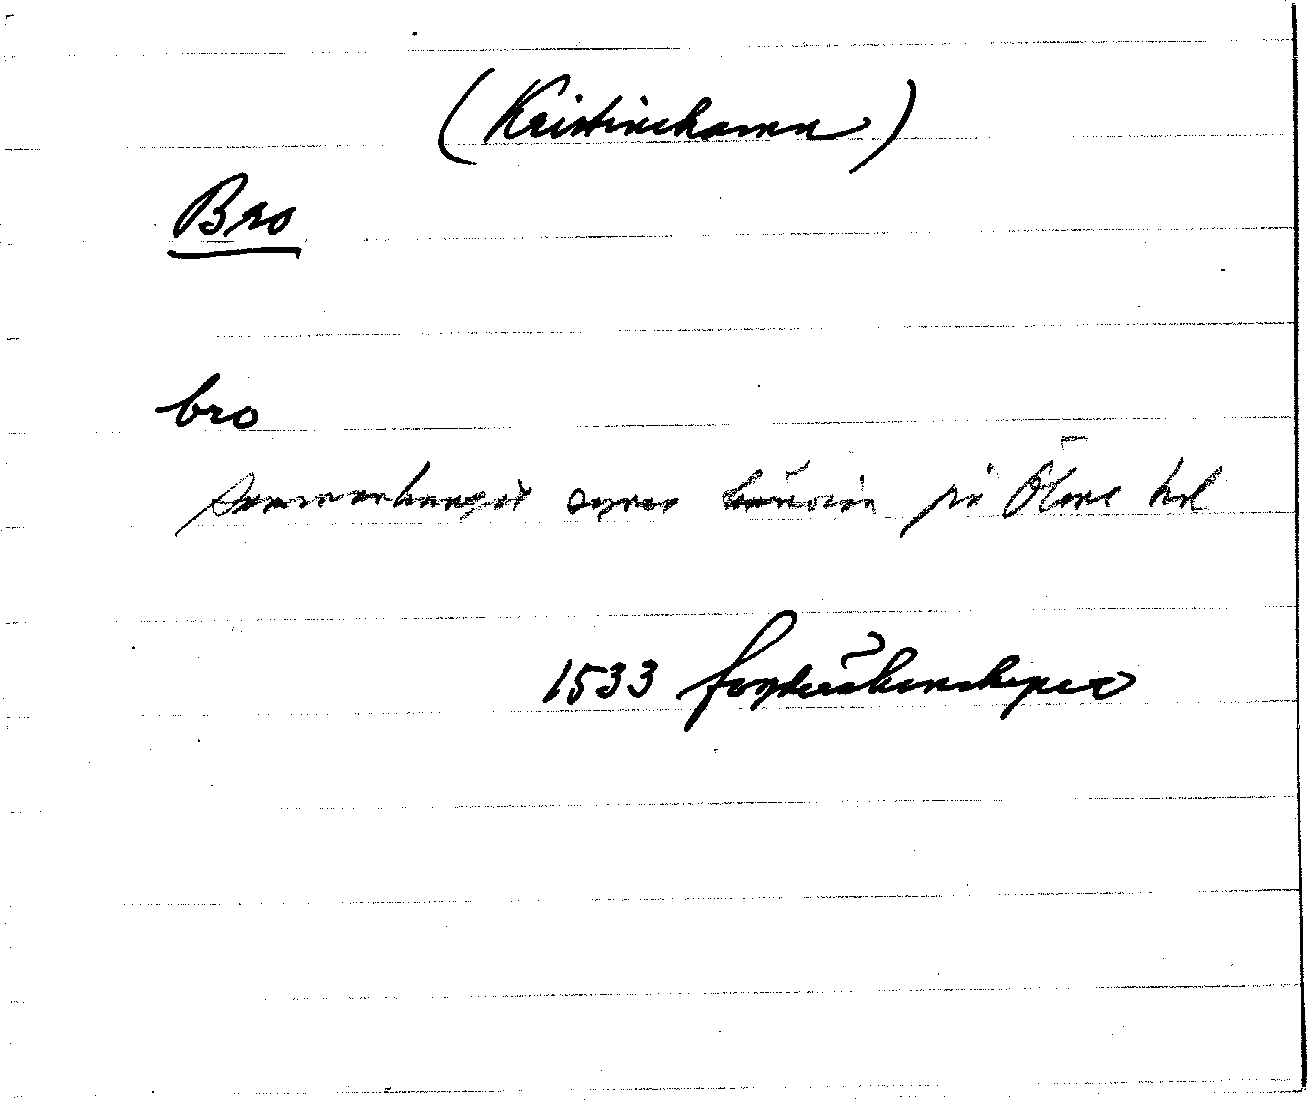 (Kristinehamn)
Bro
bro
sammanhanget synes hänvisa på Ölme hd
1533 fogderäkenskaper